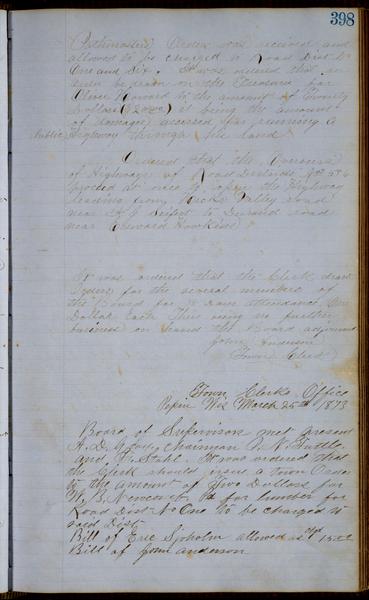 398
Postmasters Order was received and
allowed to be charged to Road Dist No
One and Six. It was ordered that an
order be drawn on the Treasurer for
Oliver Howard to the amount of Twenty
Dollars ($20.00) it being the amount
of damages accessed for running a
Public Highway through his land.
Ordered that the Overseers
of Highways of Road Districts No 5 & 6
proceed at once to open the Highway
leading from Valley Road
near A J Seifert to Durand road
near Edward Hawkins
It was ordered that the Clerk draw
Orders for the several members of
the Board for days attendance One
Dollar Each There being no further
business on hand the Board adjourned
John Anderson
Town Clerk
Town Clerks Office
Pepin Wis March 25th 1873
Board of Supervisors met present
A. D. Chairman P. N. Tuttle
and It was ordered that
the Clerk should issue a Town Order
to the amount of Five Dollars for
W. B. Newcomb for lumber for
Road Dist No One to be charged to
said Dist
Bill of Eric Sjoholm allowed
Bill of John Anderson